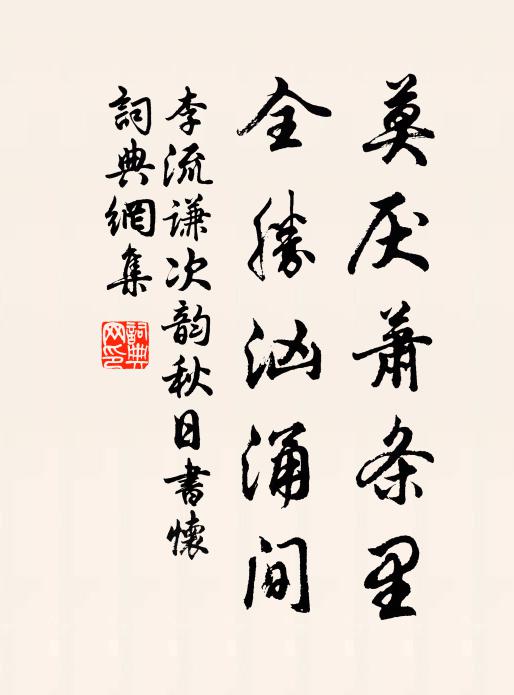 莫厌蕭条里
全勝汹涌间
李流谦次韵秋日書懷
詞典網集
詞典
网印